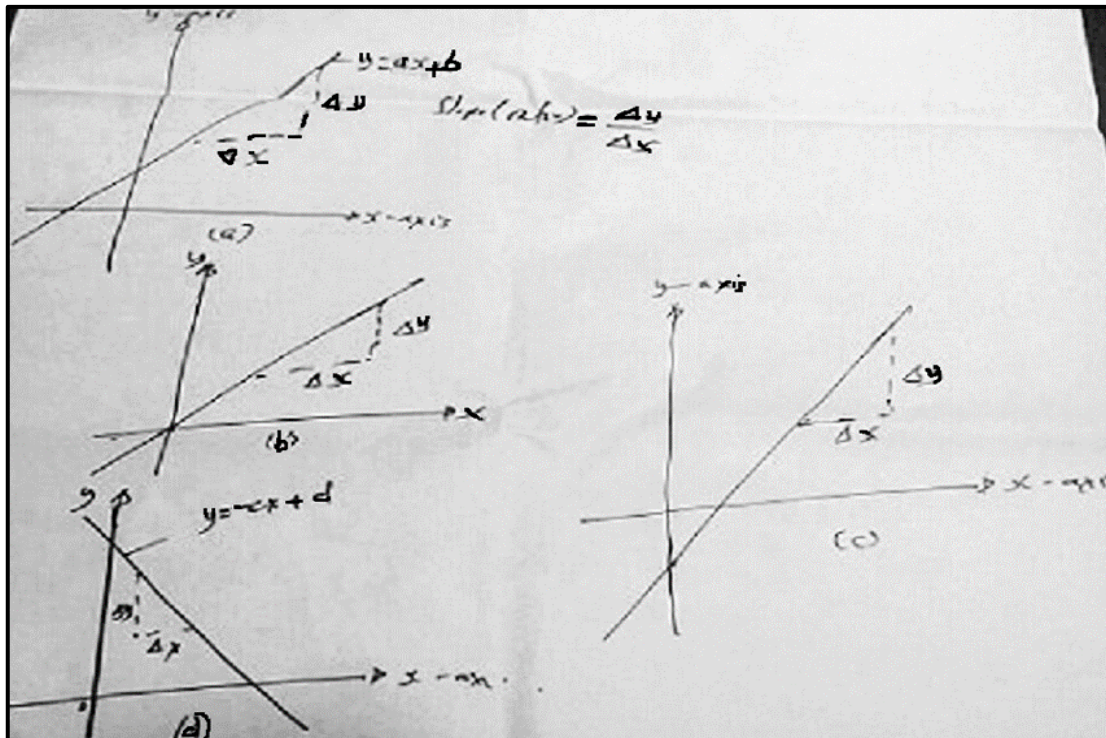 y-axis
y=ax+b
Δy
Δx
= Δy/Δx
x-axis
(a)
y
Δy
Δx
x
(b)
y-axis
Δy
Δx
x-axis
(c)
y
y=-cx+d
Δx
x-
(d)